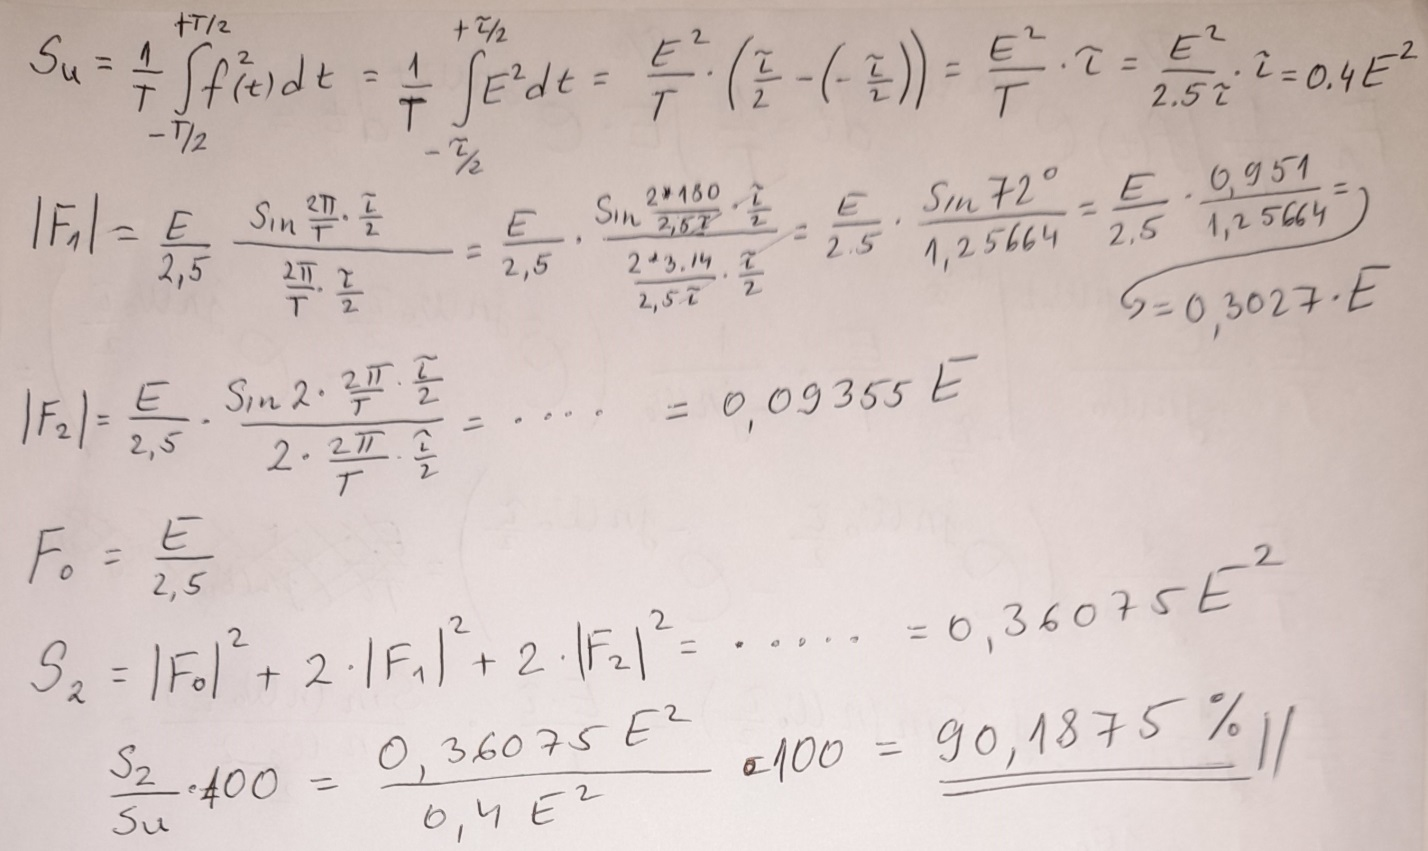 Su = 1/T ∫_{-T/2}^{+T/2} f²(t)dt = 1/T ∫_{-τ/2}^{+τ/2} E²dt = E²/T · (τ/2 - (- τ/2)) = E²/T · τ = E²/2.5τ · τ = 0.4E²
|F₁| = E/2,5 · (Sin 2π/T · τ/2)/(2π/T · τ/2) = E/2,5 · (Sin 2*180/2,5τ · τ/2)/(2*3.14/2,5τ · τ/2) = E/2.5 · Sin 72°/1,25664 = E/2.5 · 0,951/1,25664 =
= 0,3027 · E
|F₂| = E/2,5 · (Sin 2 · 2π/T · τ/2)/(2 · 2π/T · τ/2) = .... = 0,09355 E
F₀ = E/2,5
S₂ = |F₀|² + 2·|F₁|² + 2·|F₂|² = ..... = 0,36075 E²
S₂/Su · 100 = 0,36075 E²/0,4 E² · 100 = 90,1875 % //